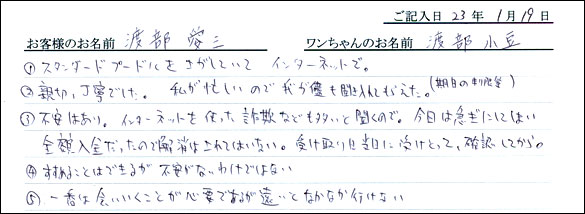 ご記入日 23 年 1月 19日
お客様のお名前 渡部 愛三 ワンちゃんのお名前 渡部 小豆
① スタンダードプードルをさがしていて インターネットで。
② 親切、丁寧でした。 私が忙しいので我が儘も聞き入れてもらえた。(期日の
③ 不安はあり。インターネットを使った詐欺なども多いと聞くので。今回は急ぎにしてはい
全額入金だったので解消はされてはいない。受け取り当日に受けとって、確認してから。
④ すすめることはできるが不安がないわけではない
⑤ 一番は会いにいくことが必要であるが遠いとなかなか行けない